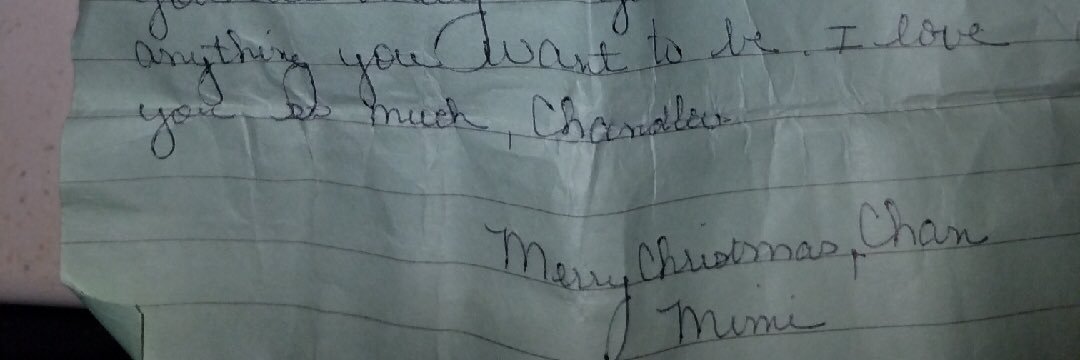 anything you want to be. I love
you so much, Chandler
Merry Christmas, Chan
Mimi